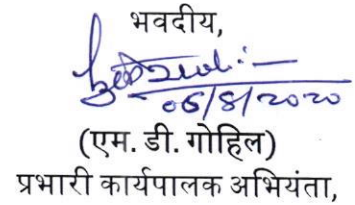 भवदीय,
06/8/2020
(एम. डी. गोहिल)
प्रभारी कार्यपालक अभियंता,